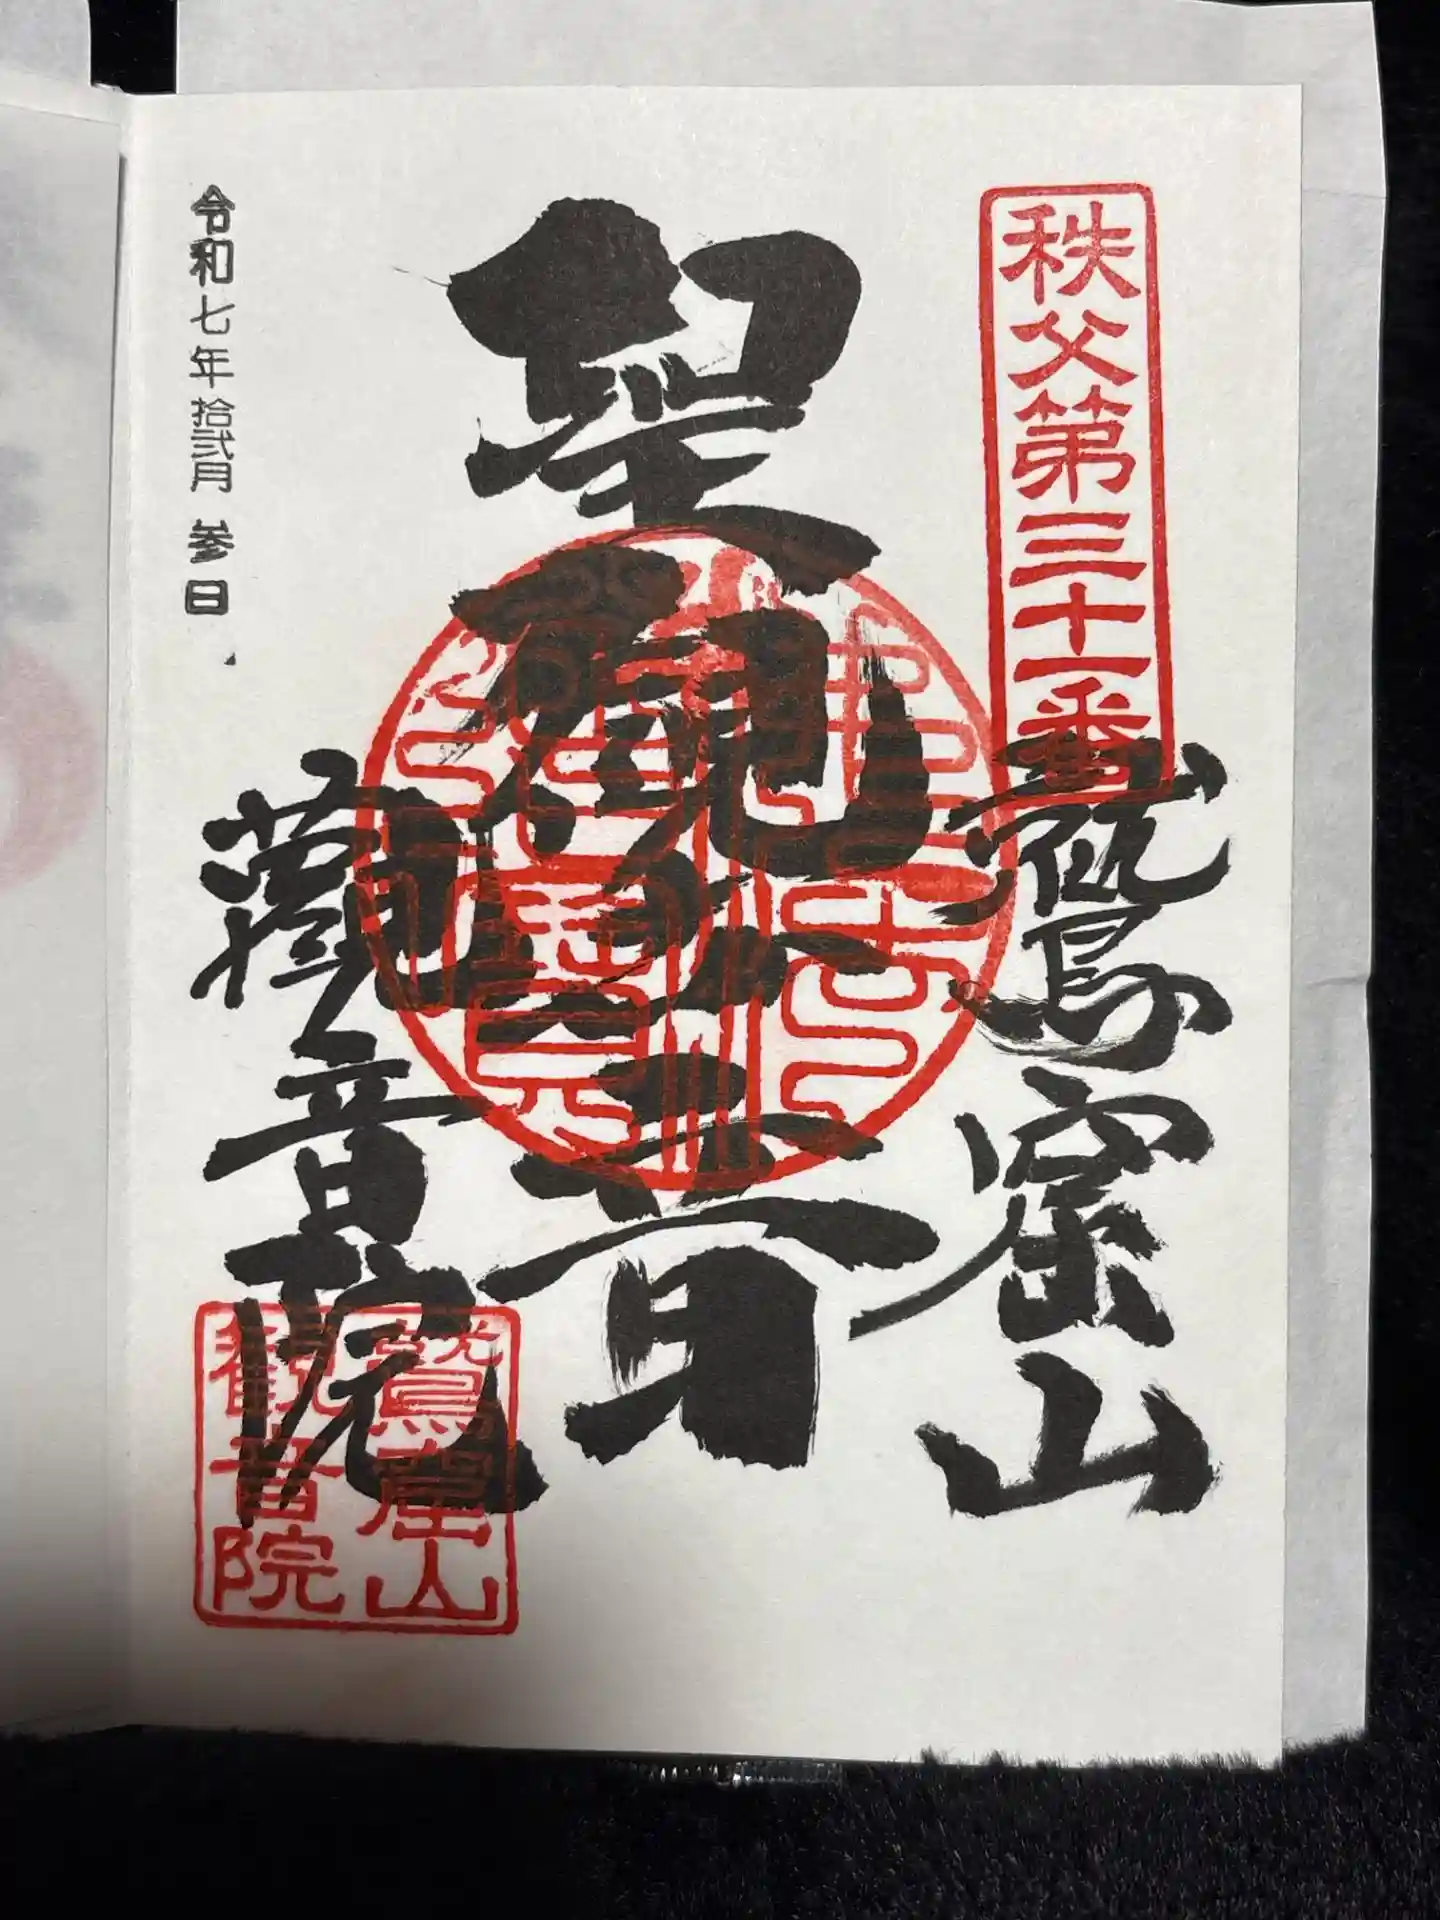 秩父第三十一番
鷲窟山
聖観世音
観音院
令和七年拾弐月参日
鷲窟山
観音院